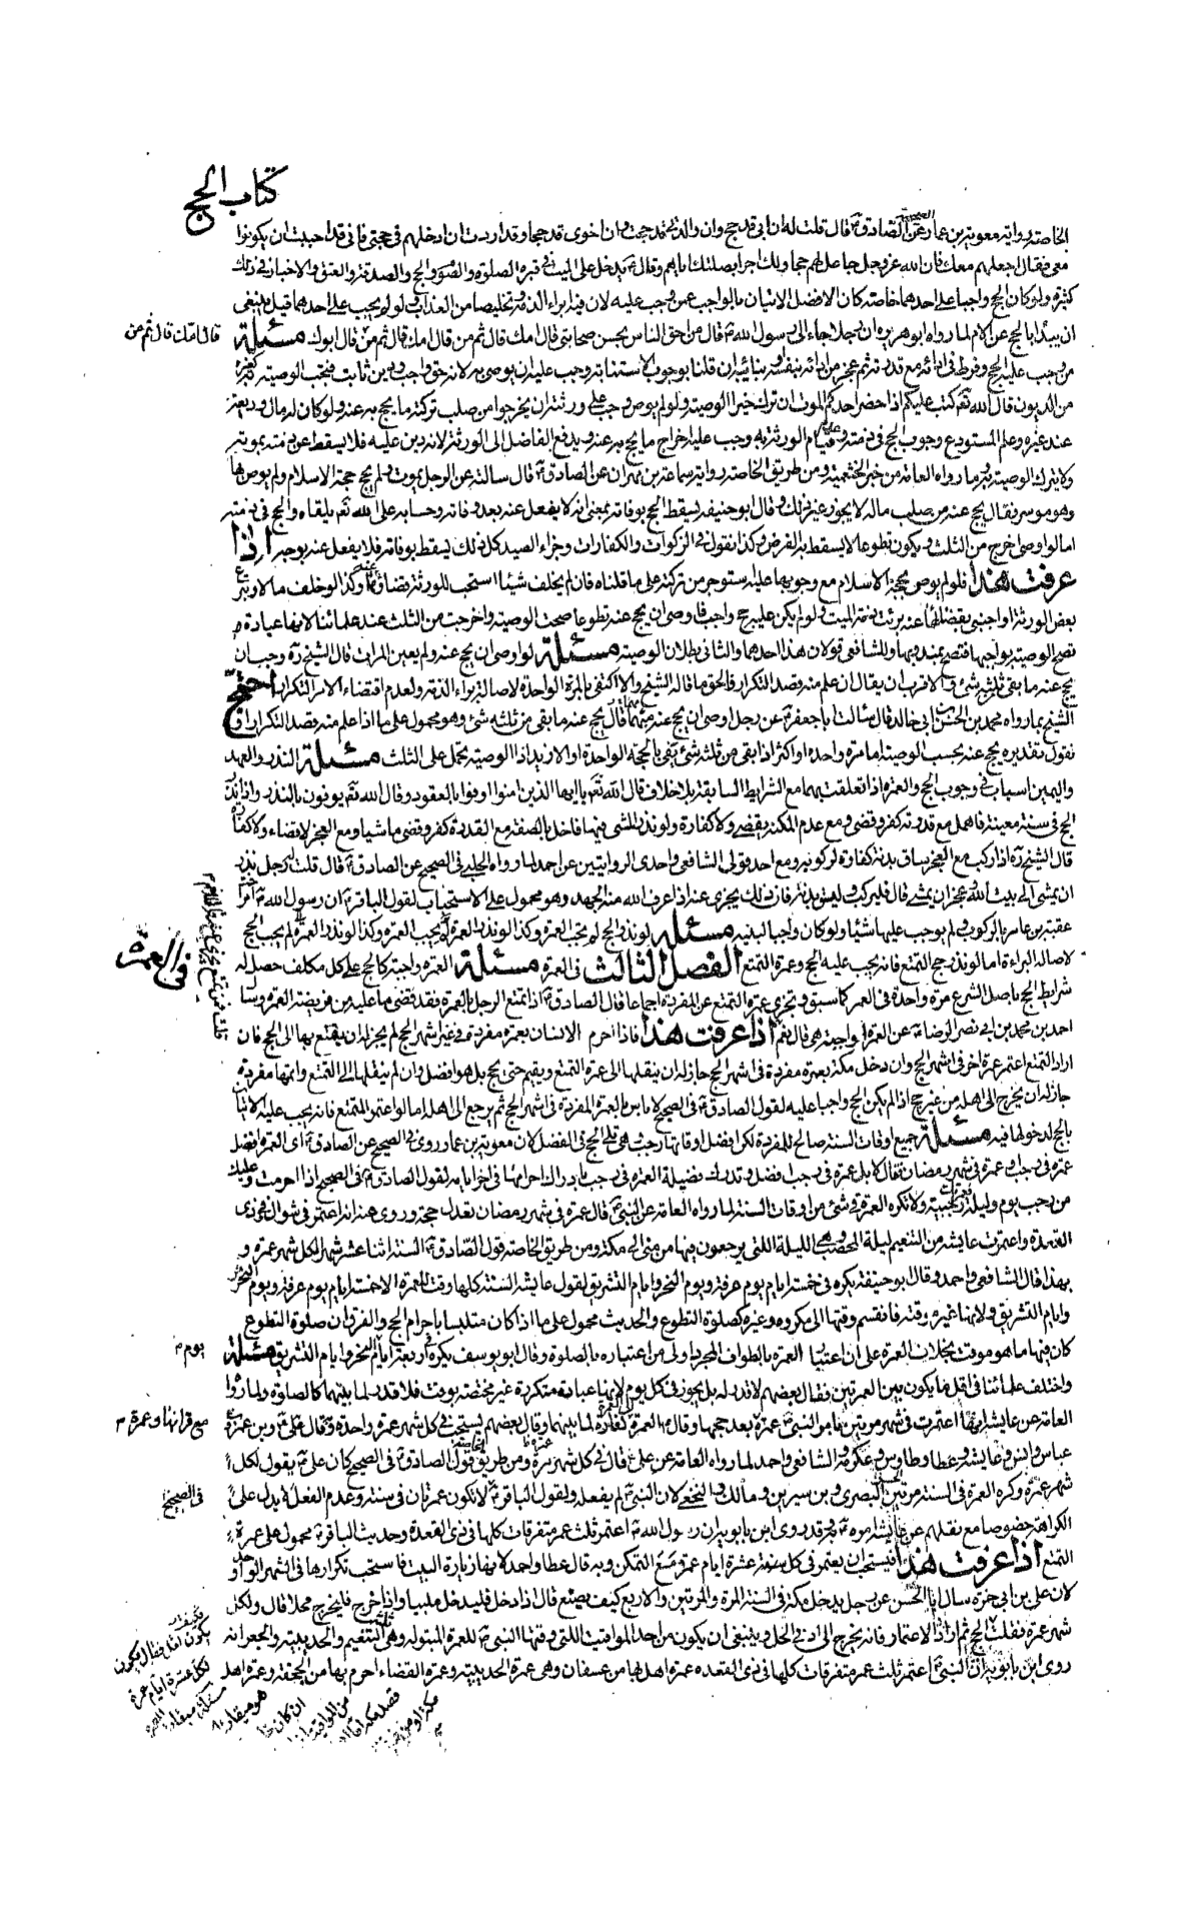 كتاب الحج
الخاصة رواية معوية بن عمار عن الصادق ع قال قلت له ان ابى قد حج وان والدتى قد حجت وان اخوى قد حجا وقد اردت ان ادخلهم فى حجتى فانى قد احببت ان يكونوا
معى فقال اجعلهم معك فان الله عز وجل جاعل لهم حجا ولك اجرا بصلتك اياهم وقال ع يدخل على الميت فى قبره الصلوة والصوم والحج والصدقة والعتق والاخبار فى ذلك
كثيرة ولو كان الحج واجبا على احدهما خاصة كان الافضل الاتيان بالواجب عمن وجب عليه لان فيه ابراء الذمة وتخليصا من العذاب ولو لم يجب على احدهما قيل ينبغى
ان يبدا بالحج عن الام لما رواه ابو هريرة ان رجلا جاء الى رسول الله ص قال من احق الناس بحسن صحابتى قال امك قال ثم من قال امك قال ثم من قال ابوك مسئلة
قال امك قال ثم من
من وجب عليه الحج وفرط فى ادائه مع قدرته ثم عجز من ادائه بنفسه وبنائبه ان قلنا بوجوب الاستنابة وجب عليه ان يوصى به لانه حق واجب ودين ثابت فتجب الوصية به كغيره
من الديون قال الله تع كتب عليكم اذا حضر احدكم الموت ان ترك خيرا الوصية ولو لم يوص وجب على ورثته ان يخرجوا من صلب تركته ما يحج به عنه ولو كان له مال وديعة
عند غيره وعلم المستودع وجوب الحج فى ذمته وعدم قيام الورثة به وجب عليه اخراج ما يحج به عنه ويدفع الفاضل الى الورثة لانه دين عليه فلا يسقط عن ذمته بموته
ولا بترك الوصية به وبما رواه العامة من خبر الخثعمية ومن طريق الخاصة رواية سماعة بن مهران عن الصادق ع قال سالته عن الرجل يموت ولم يحج حجة الاسلام ولم يوص بها
وهو موسر فقال يحج عنه من صلب ماله لا يجوز غير ذلك وقال ابو حنيفة يسقط الحج بوفاته بمعنى انه لا يفعل عنه بعد وفاته وحسابه على الله تع يلقاه والحج فى ذمته
اما لو اوصى اخرج من الثلث ويكون تطوعا لا يسقط به الفرض وكذا نقول فى الزكوات والكفارات وجزاء الصيد كل ذلك يسقط بوفاته فلا يفعل عنه بوجه اذا
عرفت هذا فلو لم يوص بحجة الاسلام مع وجوبها عليه استوجر من تركته على ما قلناه فان لم يخلف شيئا استحب للورثة قضاؤه عنه وكذا لو خلف مالا وتبرع
بعض الورثة او اجنبى بقضائها عنه برئت ذمة الميت ولو لم يكن عليه حج واجب فاوصى ان يحج عنه تطوعا صحت الوصية واخرجت من الثلث عند علمائنا لانها عبادة
تصح الوصية بواجبها فتصح بمندوبها وللشافعى قولان هذا احدهما والثانى بطلان الوصية مسئلة لو اوصى ان يحج عنه ولم يعين المرات قال الشيخ ره وجب ان
يحج عنه ما بقى من ثلثه شئ والاقرب ان يقال ان علم منه قصد التكرار فالحق ما قاله الشيخ والا اكتفى بالمرة الواحدة لاصالة براءة الذمة ولعدم اقتضاء الامر التكرار احتج
الشيخ بما رواه محمد بن الحسن بن ابى خالد قال سالت ابا جعفر ع عن رجل اوصى ان يحج عنه مبهما قال يحج عنه ما بقى من ثلثه شئ وهو محمول على ما اذا علم منه قصد التكرار او
نقول تقديره يحج عنه بحسب الوصية اما مرة واحدة او اكثر اذا بقى من ثلثه شئ يفى بالحجة الواحدة او الازيد اذا الوصية تحمل على الثلث مسئلة النذر والعهد
واليمين اسباب فى وجوب الحج والعمرة اذا تعلقت بهما مع الشرايط السابقة بلا خلاف قال الله تع يا ايها الذين امنوا اوفوا بالعقود وقال الله تع يوفون بالنذر واذا نذر
الحج فى سنة معينة فاهمل مع قدرته كفر وقضى ومع عدم المكنة يقضى ولا كفارة ولو نذر المشى فيها فاخل بالصفة مع القدرة كفر وقضى ماشيا ومع العجز لا قضاء ولا كفارة
قال الشيخ ره اذا ركب مع العجز ساق بدنة كفارة لركوبه وهو احد قولى الشافعى واحدى الروايتين عن احمد لما رواه الحلبى فى الصحيح عن الصادق ع قال قلت له رجل نذر
ان يمشى الى بيت الله وعجز ان يمشى قال فليركب وليسق بدنة فان ذلك يجزى عنه اذا عرف الله منه الجهد وهو محمول على الاستحباب لقول الباقر ع ان رسول الله ص امر اخت
عقبة بن عامر بالركوب ولم يوجب عليها شيئا ولو كان واجبا لبينه مسئلة لو نذر الحج لم تجب العمرة وكذا لو نذر العمرة لم يجب الحج
لاصالة البراءة اما لو نذر حج التمتع فانه يجب عليه الحج وعمرة التمتع الفصل الثالث فى العمرة مسئلة العمرة واجبة كالحج على كل مكلف حصل له
فى العمرة
شرايط الحج باصل الشرع مرة واحدة فى العمر كما سبق وتجزى عمرة التمتع عن المفردة اجماعا قال الصادق ع اذا تمتع الرجل بالعمرة فقد قضى ما عليه من فريضة العمرة وسال
احمد بن محمد بن ابى نصر الرضا ع عن العمرة اواجبة هى قال نعم اذا عرفت هذا فاذا احرم الانسان بعمرة مفردة فى غير اشهر الحج لم يجز له ان يتمتع بها الى الحج فان
اراد التمتع اعتمر عمرة اخرى فى اشهر الحج وان دخل مكة بعمرة مفردة فى اشهر الحج جاز له ان ينقلها الى عمرة التمتع ويقيم حتى يحج بل هو افضل وان لم ينقلها الى التمتع واتمها مفردة
جاز له ان يخرج الى اهله من غير حج اذا لم يكن الحج واجبا عليه لقول الصادق ع فى الصحيح لا باس بالعمرة المفردة فى اشهر الحج ثم يرجع الى اهله اما لو اعتمر المتمتع فانه يجب عليه الاتيان
بالحج لدخولها فيه مسئلة جميع اوقات السنة صالح للمفردة لكن افضل اوقاتها رجب هى تلى الحج فى الفضل لان معوية بن عمار روى فى الصحيح عن الصادق ع اى العمرة افضل
عمرة فى رجب او عمرة فى شهر رمضان فقال لا بل عمرة فى رجب افضل وتدرك فضيلة العمرة فى رجب بادراك احرامها فى اخر ايامه لقول الصادق ع فى الصحيح اذا احرمت وعليك
من رجب يوم وليلة فعمرتك رجبية ولا تكره العمرة فى شئ من اوقات السنة لما رواه العامة عن النبى ص قال عمرة فى شهر رمضان تعدل حجة وروى عنه انه اعتمر فى شوال وفى ذى
القعدة واعتمرت عايشة من التنعيم ليلة المحصب وهى الليلة التى يرجعون فيها من منى الى مكة ومن طريق الخاصة قول الصادق ع السنة اثنا عشر شهرا لكل شهر عمرة و
بهذا قال الشافعى واحمد وقال ابو حنيفة يكره فى خمسة ايام يوم عرفة ويوم النحر وايام التشريق لقول عايشة السنة كلها وقت للعمرة الا خمسة ايام يوم عرفة ويوم النحر
وايام التشريق ولانها غير موقتة فانقسم وقتها الى مكروه وغيره كصلوة التطوع والحديث محمول على ما اذا كان متلبسا باحرام الحج والفرق ان صلوة التطوع
كان فيها ما هو موقت بخلاف العمرة على ان اعتبار العمرة بالطواف المجرد اولى من اعتباره بالصلوة وقال ابو يوسف يكره فى اربعة ايام النحر وايام التشريق مسئلة
يوم
واختلف علمائنا فى اقل ما يكون بين العمرتين فقال بعضهم لا قدر له بل يجوز فى كل يوم لانها عبادة متكررة غير مختصة بوقت فلا قدر لما بينهما كالصلوة ولما رووا
العامة عن عايشة انها اعتمرت فى شهر مرتين بامر النبى ص عمرة بعد حجها وقال ص العمرة الى العمرة كفارة لما بينهما وقال بعضهم يستحب فى كل شهر عمرة واحدة وقال على ع وبن عمر و
مع قرانها وعمرة
عباس وانس وعايشة وعطا وطاوس وعكرمة والشافعى واحمد لما رواه العامة عن على ع قال فى كل شهر مرة ومن طريق الخاصة قول الصادق ع فى الصحيح كان على ع يقول لكل
شهر عمرة وكره العمرة فى السنة مرتين الحسن البصرى وبن سيرين ومالك والنخعى لان النبى ص لم يفعله ولقول الباقر ع لا تكون عمرتان فى سنة وعدم الفعل لا يدل على
فى الصحيح
الكراهة خصوصا مع نقلهم عن عايشة امره ص وقد روى ابن بابويه ان رسول الله ص اعتمر ثلث عمر متفرقات كلها فى ذى القعدة وحديث الباقر ع محمول على عمرة
التمتع اذا عرفت هذا فيستحب ان يعتمر فى كل عشرة ايام عمرة مع التمكن وبه قال عطا واحمد لانها زيارة البيت فاستحب تكرارها فى الشهر الواحد و
لان على بن ابى حمزة سال ابا الحسن عن رجل يدخل مكة فى السنة المرة والمرتين والاربع كيف يصنع قال اذا دخل فليدخل ملبيا واذا خرج فليخرج محلا قال ولكل
شهر عمرة فقلت يكون اقل فقال يكون لكل عشرة ايام عمرة مسئلة ميقات العمرة هو ميقات الحج ثم اراد الاعتمار فانه يخرج الى ادنى الحل وينبغى ان يكون من احد المواقيت التى وقتها النبى ص للعمرة المبتولة وهى التنعيم والحديبية والجعرانة
روى ابن بابويه ان النبى ص اعتمر ثلث عمر متفرقات كلها فى ذى القعدة عمرة اهل بها من عسفان وهى عمرة الحديبية وعمرة القضاء احرم بها من الجحفة وعمرة اهل